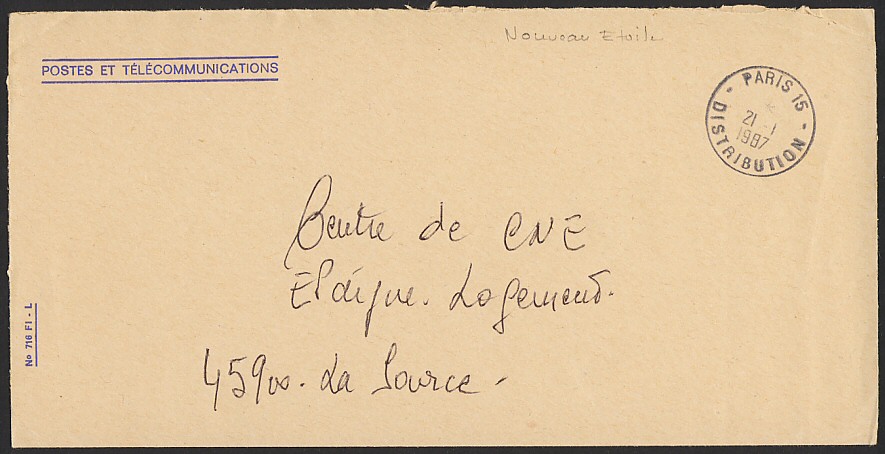 Nouveau Etoile
POSTES ET TÉLÉCOMMUNICATIONS
PARIS 15 - DISTRIBUTION -
21 - 1
1987
Centre de CNE
Epargne. Logement.
45900. La Source -
No 716 FI - L